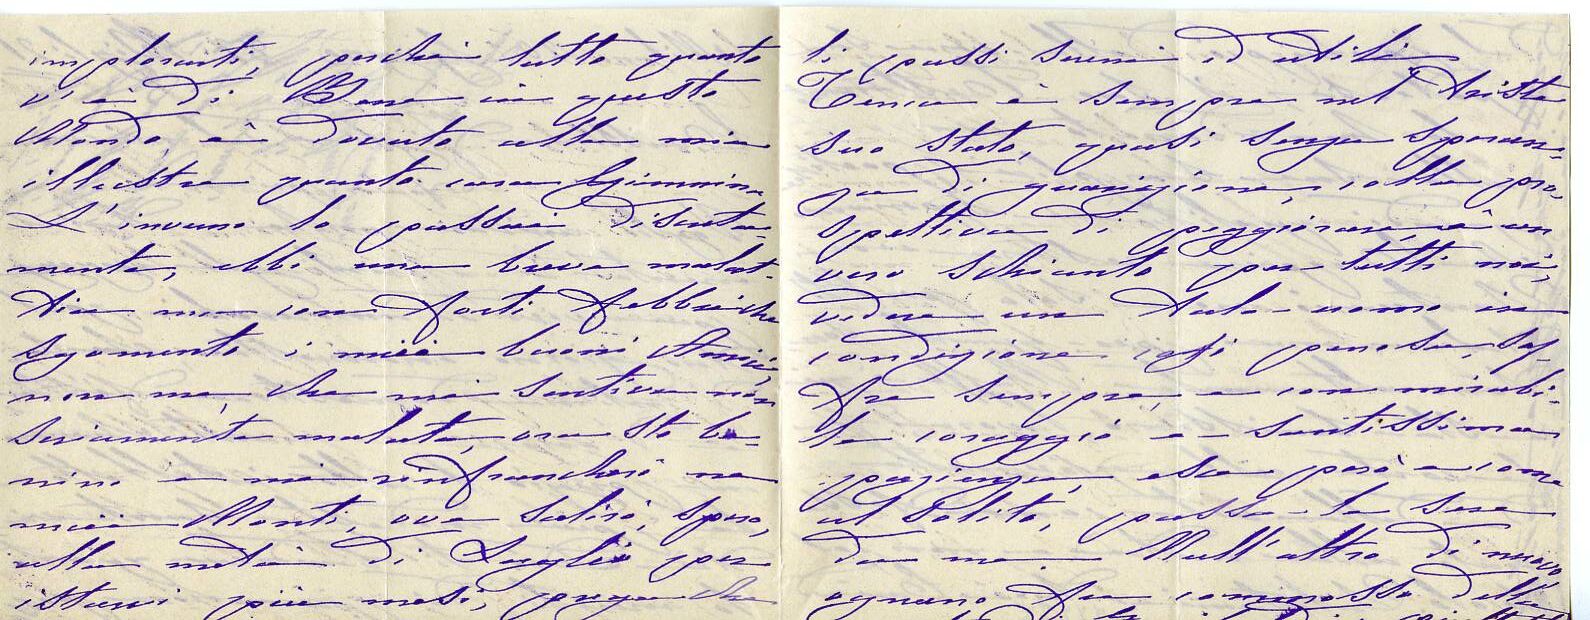 imploranti, perchè tutto quanto
v'è di Bene in questo
Mondo, è dovuto alla mia
illustre quanto cara Gemmina
L'inverno lo passai discreta-
mente, ebbi una breve malat-
tia ma con forti febbri che
sgomentò i miei buoni Amici,
non me, che mi sentiva non
seriamente malata, ora sto be-
nino e mi rinfrancherò ne
miei Monti, ove salirò, spero,
alla metà di Luglio per
istarvi più mesi, prego che
li passi sereni ed utili
è sempre nel triste
suo stato, quasi senza speran-
za di guarigione, colla pro-
spettiva di peggiorare, è un
vero schianto per tutti noi,
vedere un tale uomo in
condizione così penosa, sof-
fre sempre, e con mirabi-
le coraggio e santissima
pazienza, esce però e come
al solito, passa le sere
da me. Null'altro di nuovo
ognuno fu commosso della